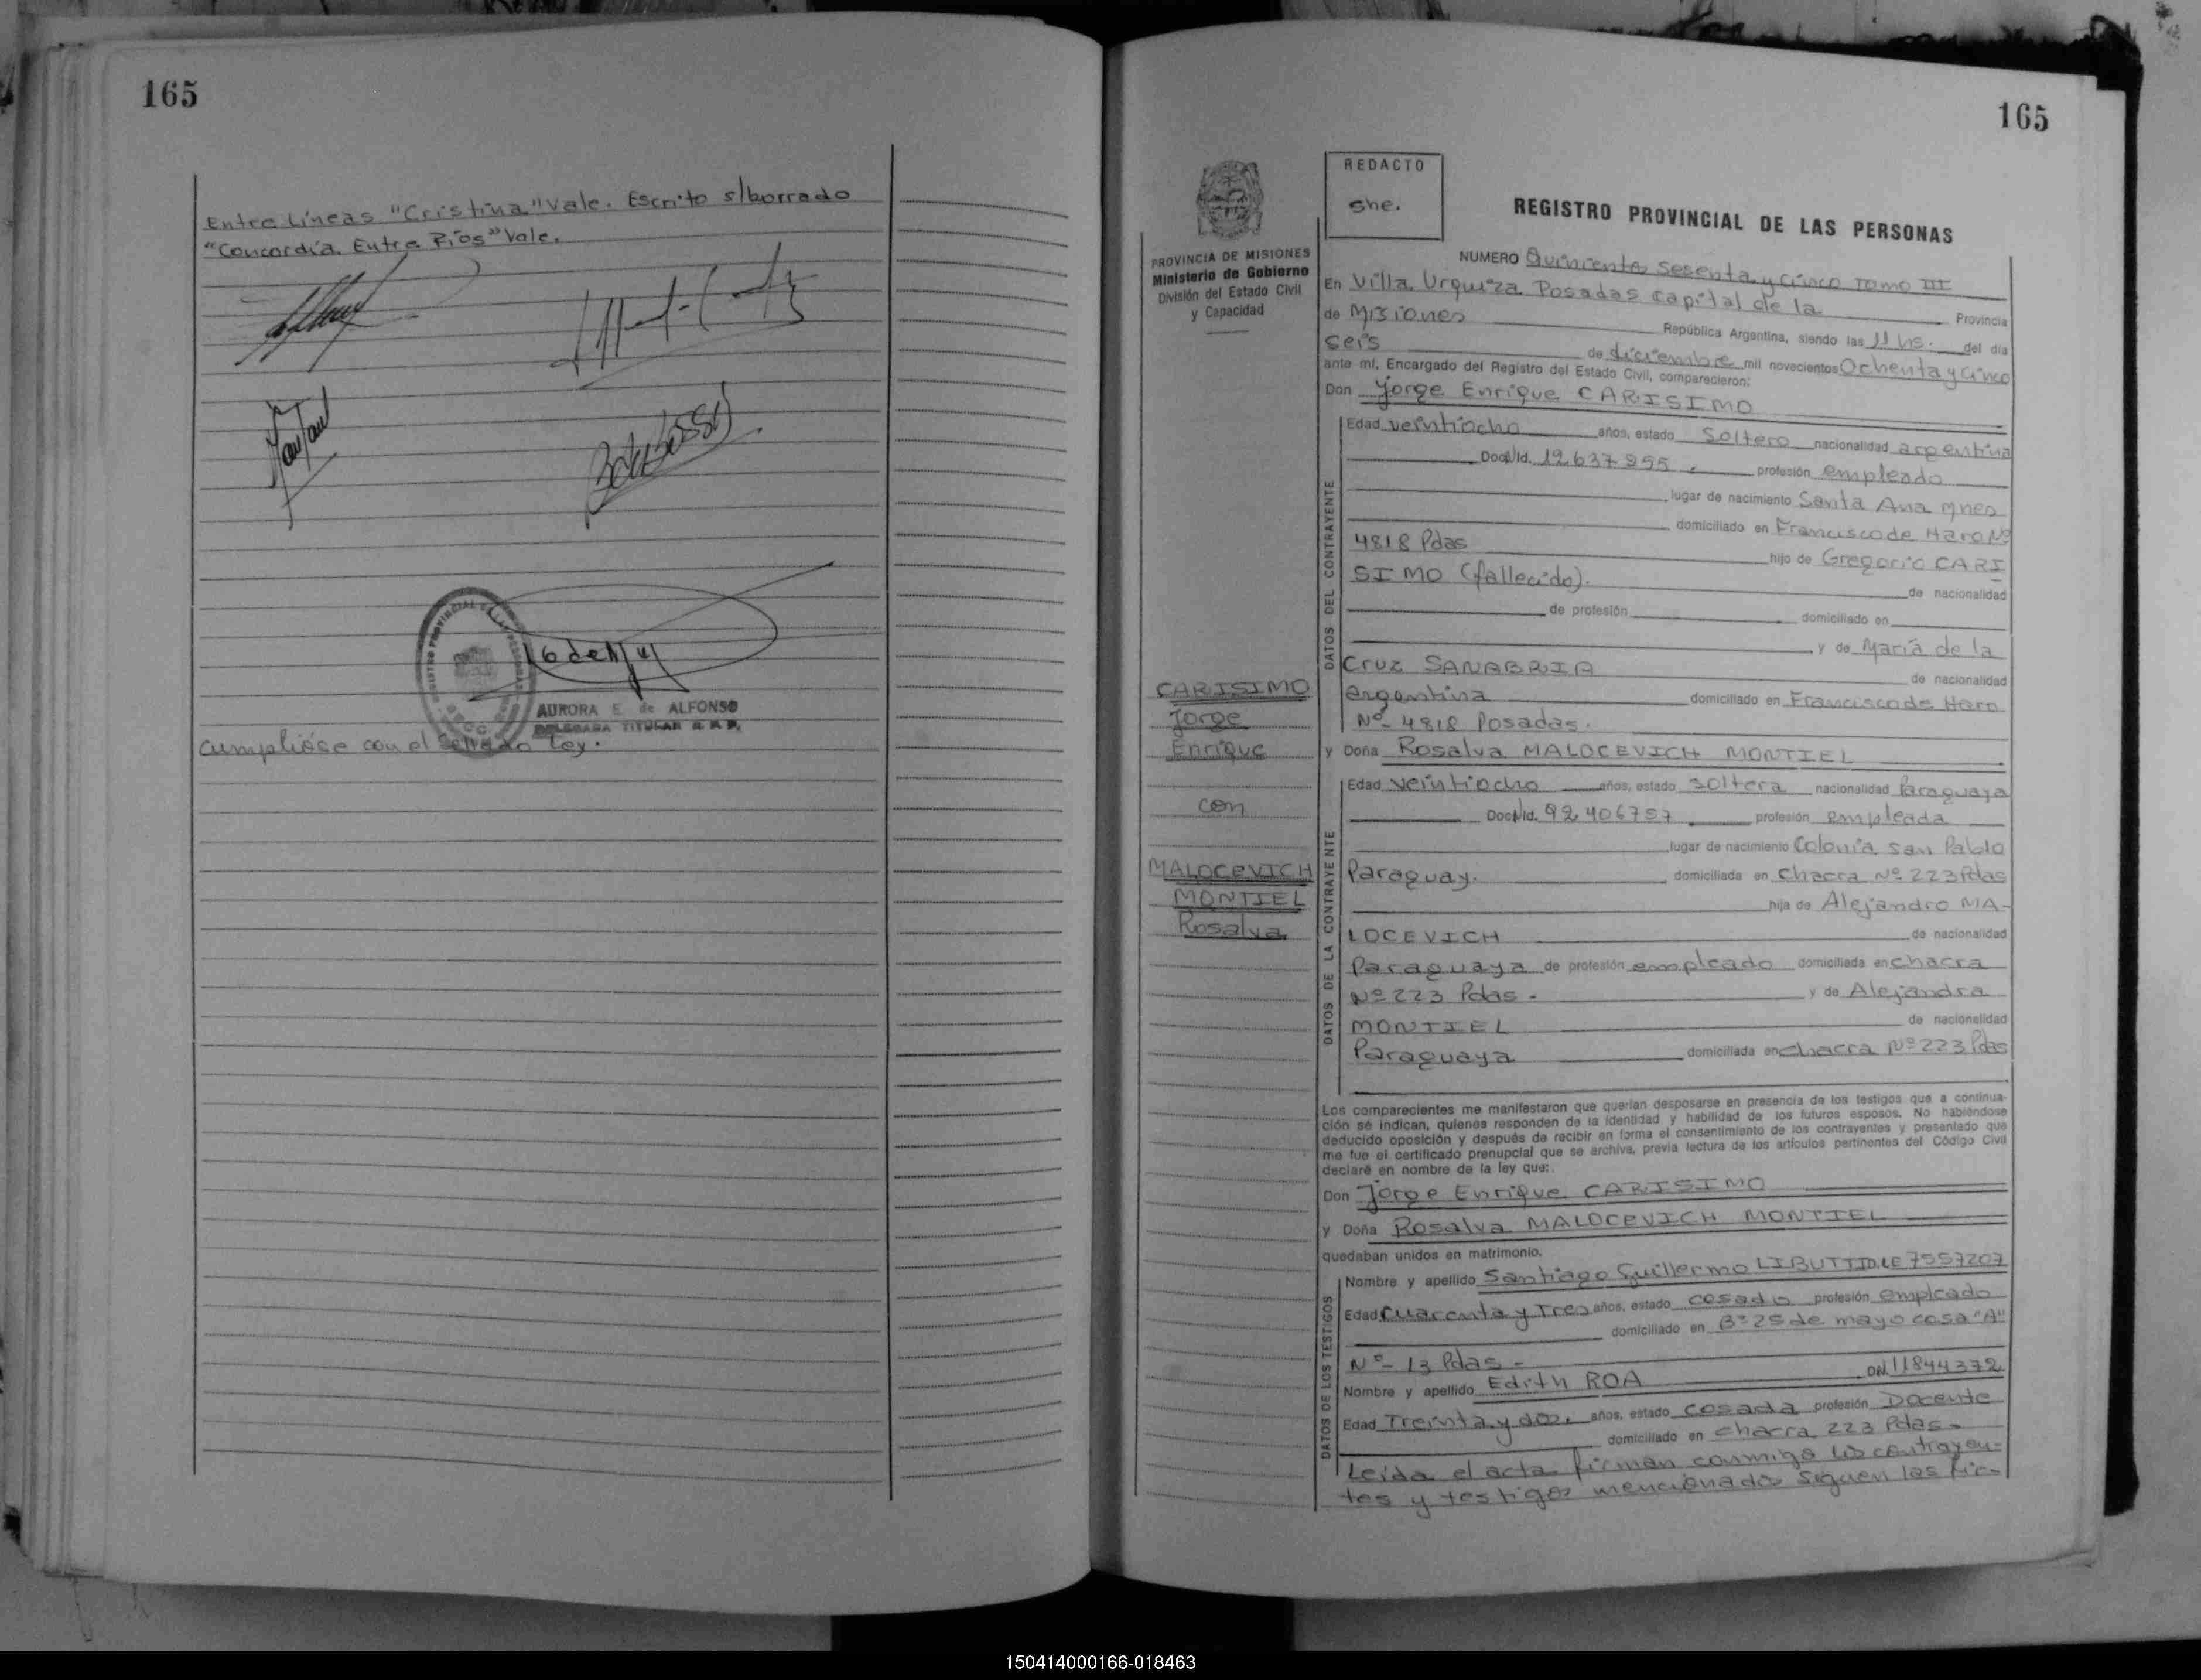 165
Entre Líneas "Cristina" Vale. Escrito s/borrado
"Concordia. Entre Ríos" Vale.
AURORA E. de ALFONSO
DELEGADA TITULAR R.P.P.
cumplióse con el Sellado Ley.
165
PROVINCIA DE MISIONES
Ministerio de Gobierno
División del Estado Civil
y Capacidad
REDACTO
she.
REGISTRO PROVINCIAL DE LAS PERSONAS
NUMERO Quiniento sesenta y cinco Tomo III
En Villa Urquiza Posadas capital de la Provincia
de Misiones República Argentina, siendo las 11 hs. del día
seis de diciembre mil novecientos Ochenta y cinco
ante mí, Encargado del Registro del Estado Civil, comparecieron:
Don Jorge Enrique CARISIMO
DATOS DEL CONTRAYENTE
Edad veintiocho años, estado Soltero nacionalidad argentina
Doc. N Id. 12.637.955. profesión empleado
lugar de nacimiento Santa Ana Mnes
domiciliado en Francisco de Haro Nº
4818 Pdas hijo de Gregorio CARI
SIMO (fallecido). de nacionalidad
de profesión domiciliado en
y de María de la
Cruz SANABRIA de nacionalidad
argentina domiciliado en Francisco de Haro
Nº 4818 Posadas.
CARISIMO
Jorge
Enrique
con
MALOCEVICH
MONTIEL
Rosalva
y Doña Rosalva MALOCEVICH MONTIEL
DATOS DE LA CONTRAYENTE
Edad veintiocho años, estado soltera nacionalidad Paraguaya
Doc. N Id. 92.406757 profesión empleada
lugar de nacimiento Colonia San Pablo
Paraguay. domiciliada en Chacra Nº 223 Pdas
hija de Alejandro MA-
LOCEVICH de nacionalidad
Paraguaya de profesión empleado domiciliada en chacra
Nº 223 Pdas. y de Alejandra
MONTIEL de nacionalidad
Paraguaya domiciliada en chacra Nº 223 Pdas
Los comparecientes me manifestaron que querían desposarse en presencia de los testigos que a continua-
ción se indican, quienes responden de la identidad y habilidad de los futuros esposos. No habiéndose
deducido oposición y después de recibir en forma el consentimiento de los contrayentes y presentado que
me fue el certificado prenupcial que se archiva, previa lectura de los artículos pertinentes del Código Civil
declaré en nombre de la ley que:
Don Jorge Enrique CARISIMO
y Doña Rosalva MALOCEVICH MONTIEL
quedaban unidos en matrimonio.
DATOS DE LOS TESTIGOS
Nombre y apellido Santiago Guillermo LIBUTTI D.LE 7557207
Edad Cuarenta y Tres años, estado casado profesión empleado
domiciliado en Bº 25 de mayo casa "A"
Nº 13 Pdas.
Nombre y apellido Edith ROA DN. 11844372
Edad Treinta y dos. años, estado casada profesión Docente
domiciliado en chacra 223 Pdas.
Leida el acta firman conmigo los contrayen-
tes y testigos mencionados siguen las fir-
150414000166-018463